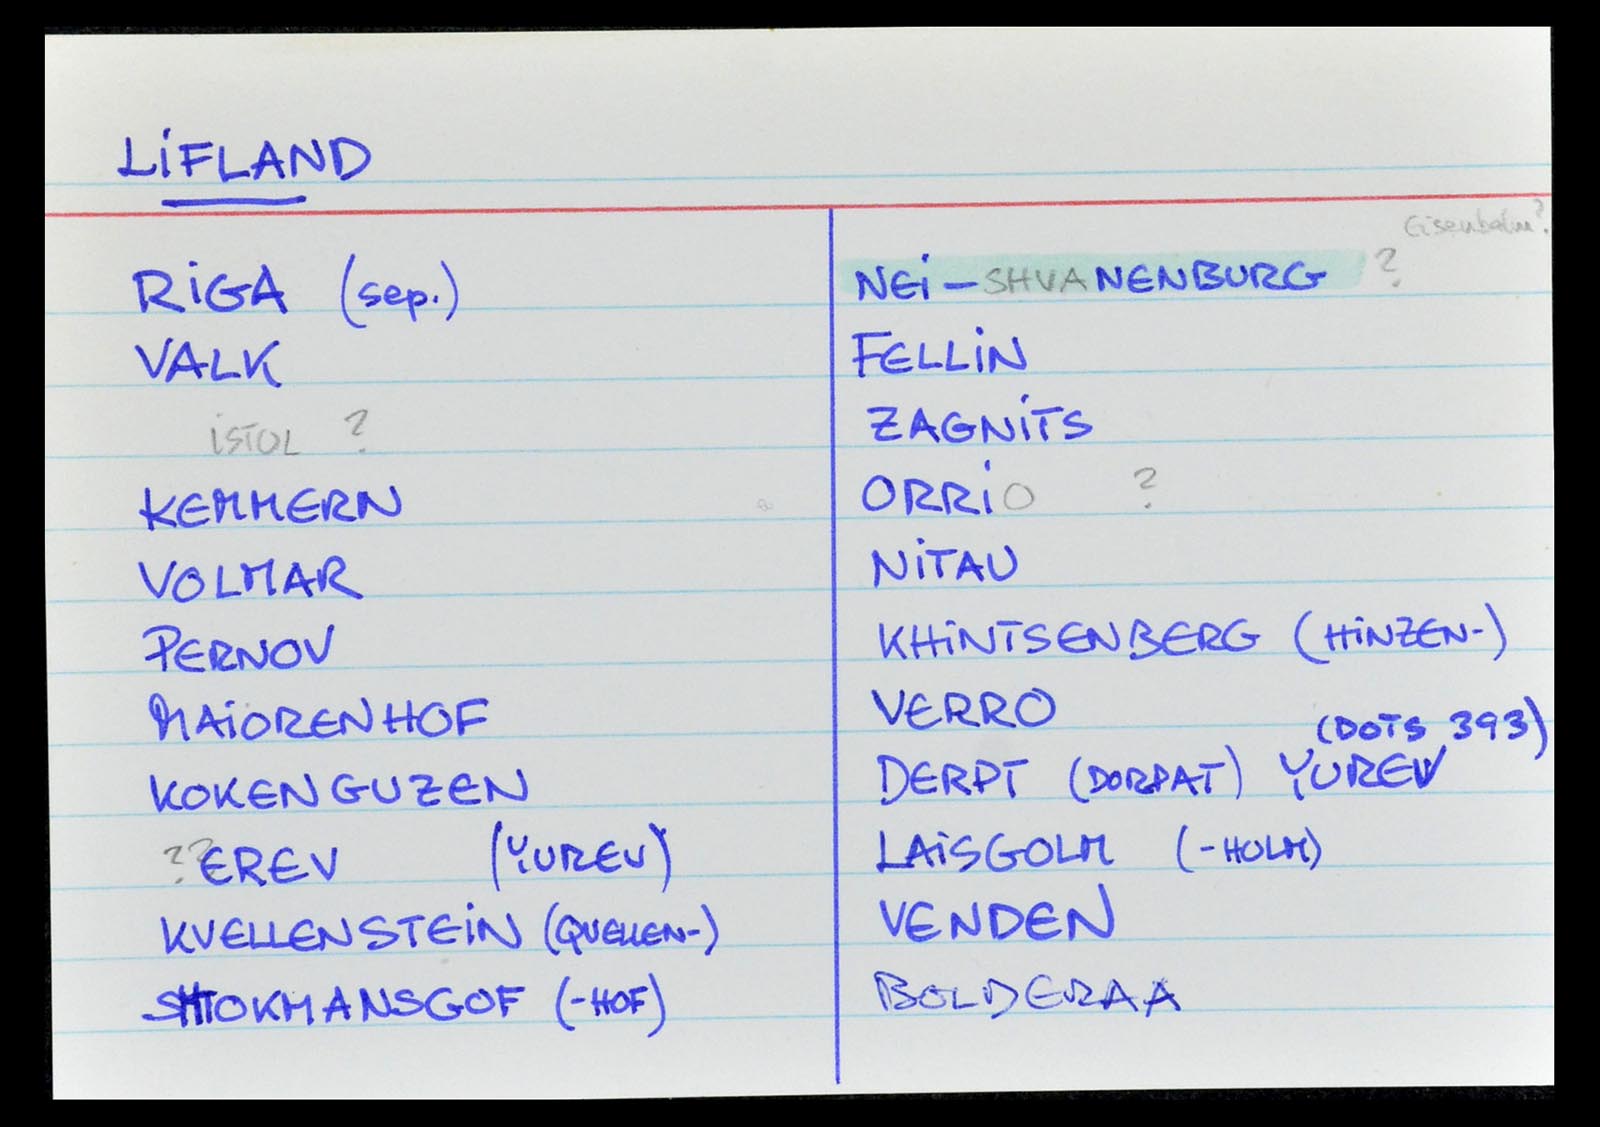 LiFLAND
RiGA (sep.)
VALK
iSTOL ?
KEMMERN
VOLMAR
PERNOV
MAiORENHOF
KOKENGUZEN
??EREV (YUREV)
KVELLENSTEiN (QUELLEN-)
SHTOKMANSGOF (-HOF)
Eisenbahn?
NEi-SHVANENBURG ?
FELLiN
ZAGNiTS
ORRiO ?
NiTAU
KHiNTSENBERG (HiNZEN-)
VERRO
(DOTS 393)
DERPT (DORPAT) YUREV
LAiSGOLM (-HOLM)
VENDEN
BOLDERAA